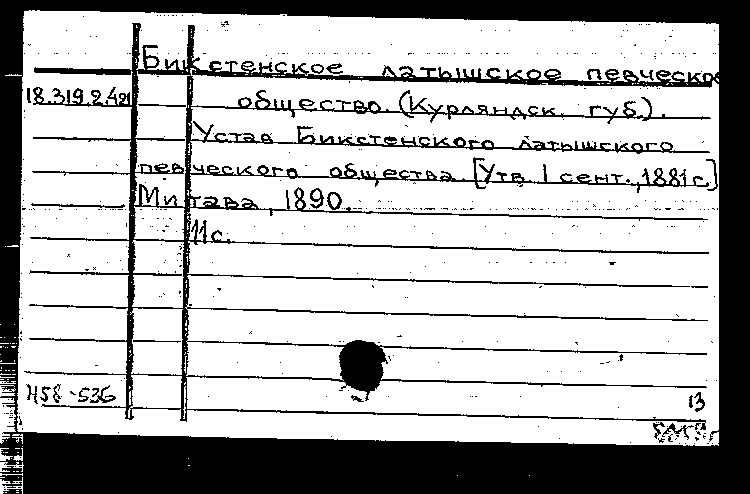 Бикстенское латышское певческо
18.319.2.421 общество. (Курляндск. губ.).
Устав Бикстенского латышского
певческого общества. [Утв. 1 сент., 1881 г.]
Митава, 1890.
11 с.
Н58-536 13